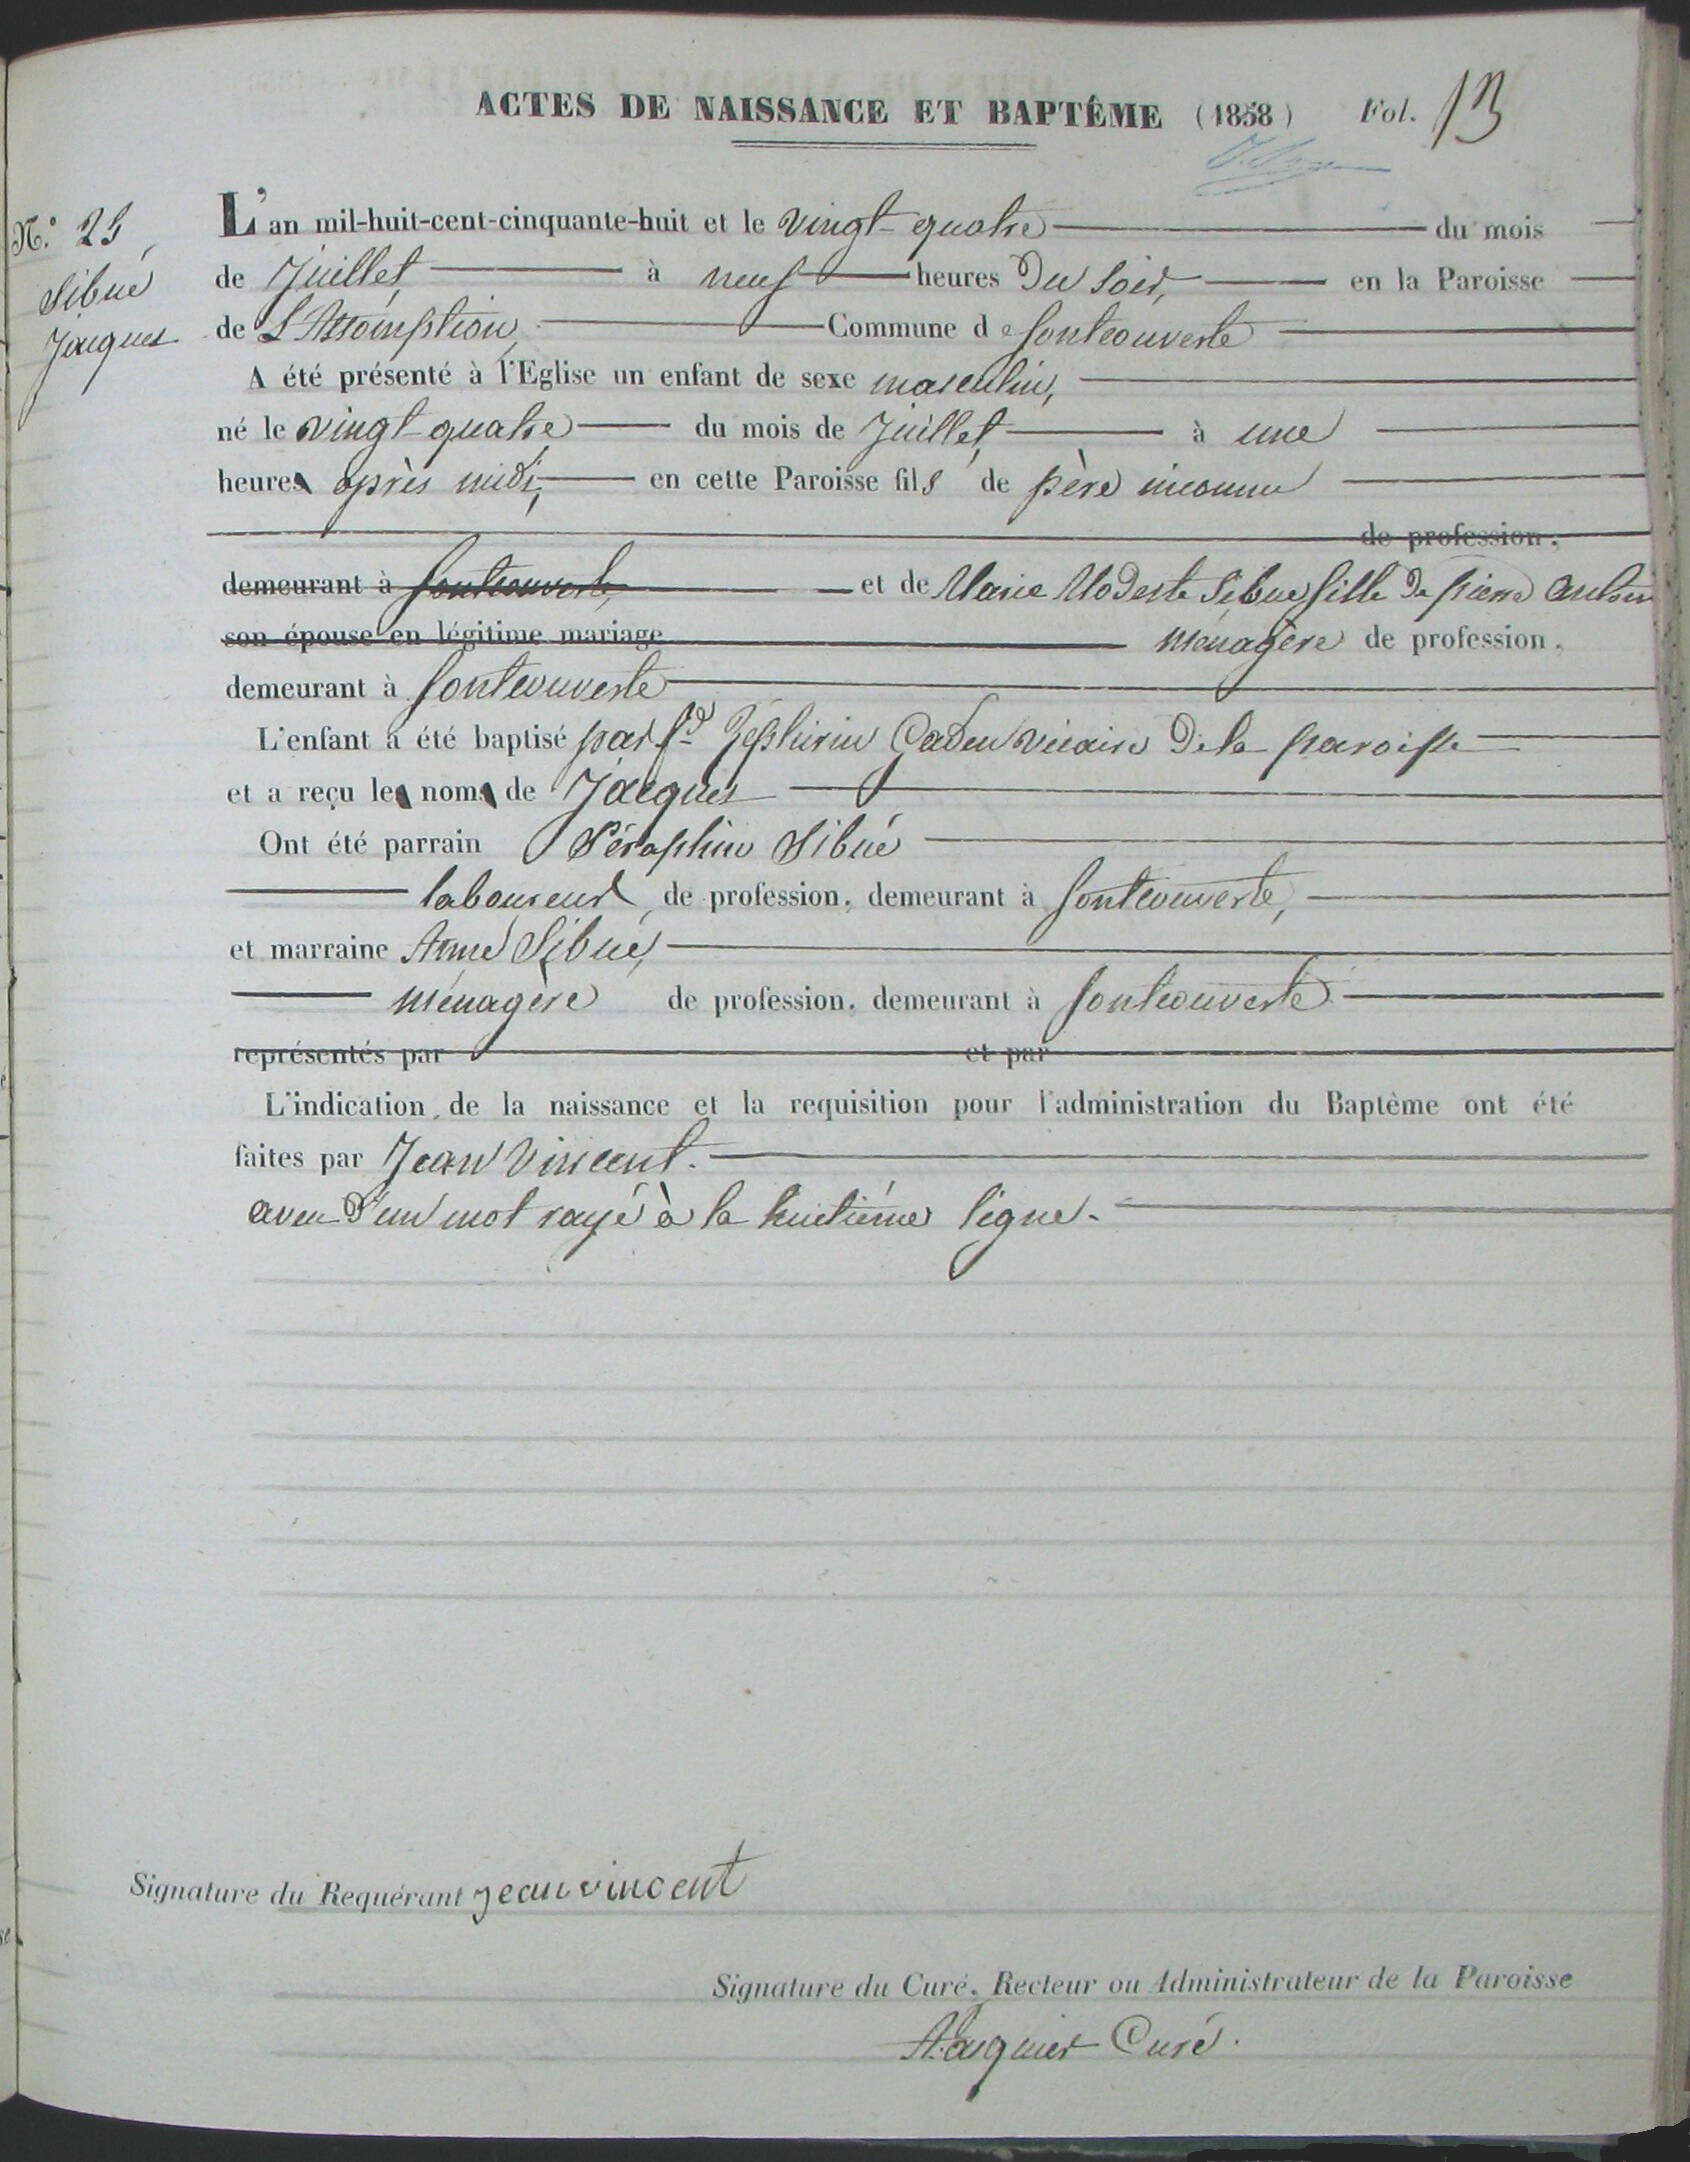 ACTES DE NAISSANCE ET BAPTÊME (1858) Fol. 13
N.o 25
Sibué
Jacques
L'an mil-huit-cent-cinquante-huit et le vingt-quatre du mois
de Juillet, à neuf heures du soir, en la Paroisse
de L'Assomption, Commune de fontcouverte
A été présenté à l'Eglise un enfant de sexe masculin,
né le vingt-quatre du mois de Juillet, à une
heures après midi, en cette Paroisse fils de père inconnu
de profession,
demeurant à fontcouverte, et de Marie Modeste Sibué fille de pierre antoine
son épouse en légitime mariage ménagère de profession,
demeurant à fontcouverte
L'enfant a été baptisé par Rd Zéphirin vicaire de la paroisse
et a reçu les noms de Jacques
Ont été parrain Séraphin Sibué
laboureur de profession, demeurant à fontcouverte,
et marraine Anne Sibué,
ménagère de profession, demeurant à fontcouverte
représentés par et par
L'indication de la naissance et la requisition pour l'administration du Baptême ont été
faites par Jean Vincent.
aveu d'un mot rayé à la huitième ligne.
Signature du Requérant jean vincent
Signature du Curé, Recteur ou Administrateur de la Paroisse
Curé.